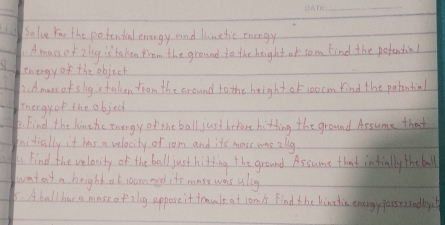 DATE
Solve for the potential energy and kinetic energy
1. A mass of 2kg is taken from the ground to the height of 10m find the potential
energy of the object
2. A mass of 5kg is taken from the ground to the height of 100cm find the potential
energy of the object
3. Find the kinetic energy of the ball just before hitting the ground Assume that
initially it has a velocity of 10m and its mass was 2kg
4. Find the velocity of the ball just hitting the ground Assume that intially the ball
was at a height of 100m and its mass was 4kg
5. A ball has a mass of 2kg suppose it travels at 10m/s Find the kinetic energy possessed by it